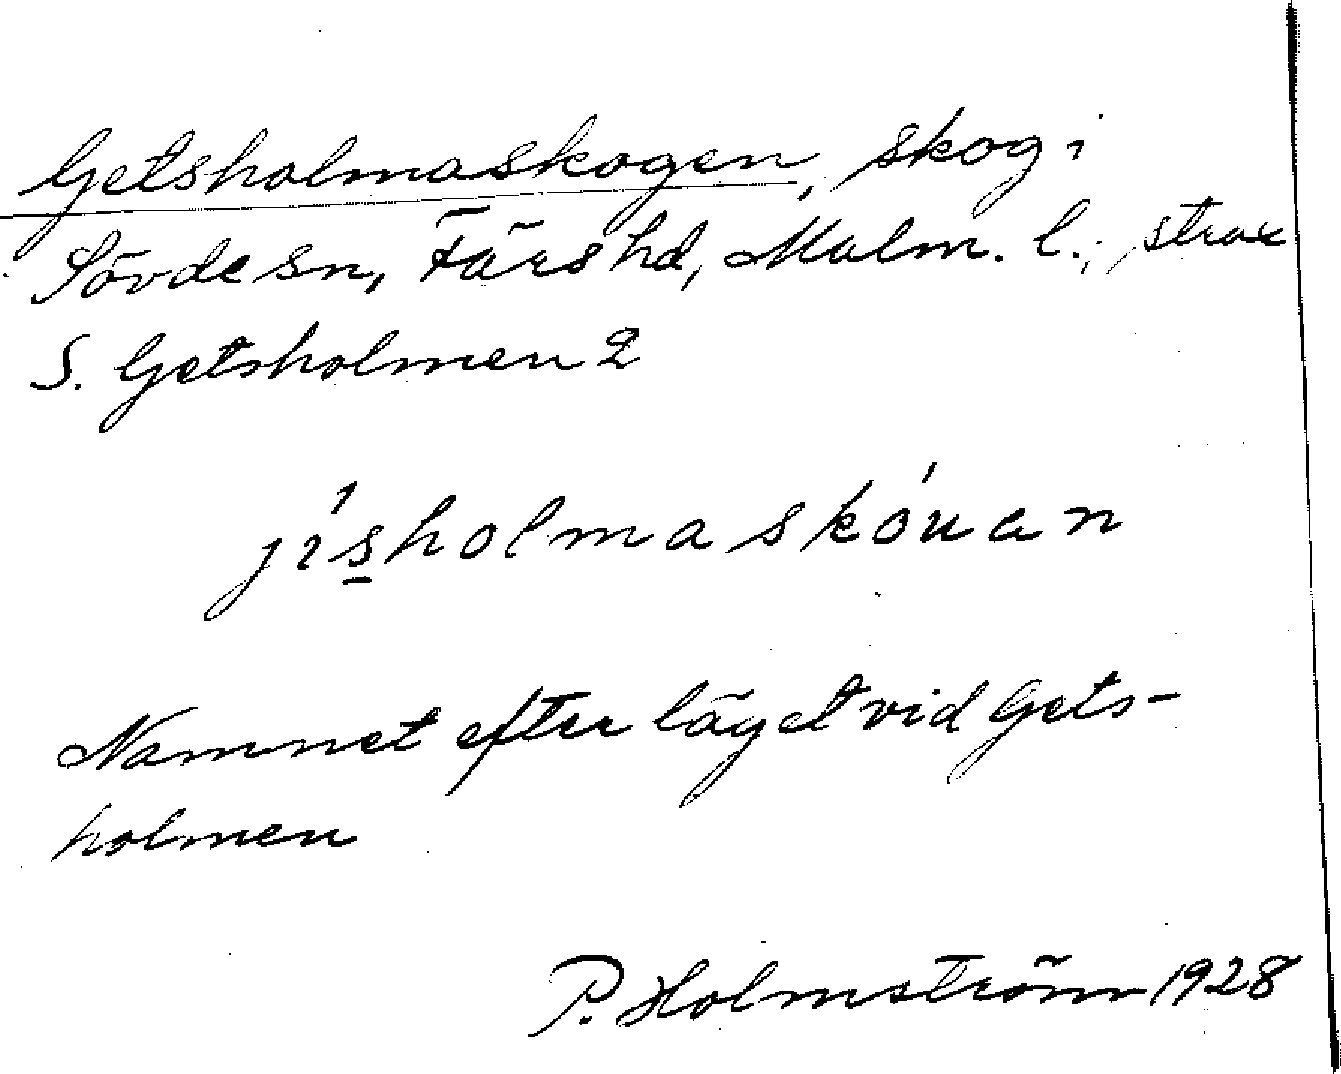 Getsholmaskogen, skog i
Sövde sn, Färs hd, Malm. l.; strax
S. Getsholmen 2
jísholmaskóuan
Namnet efter läget vid Gets-
holmen
P. Holmström 1928